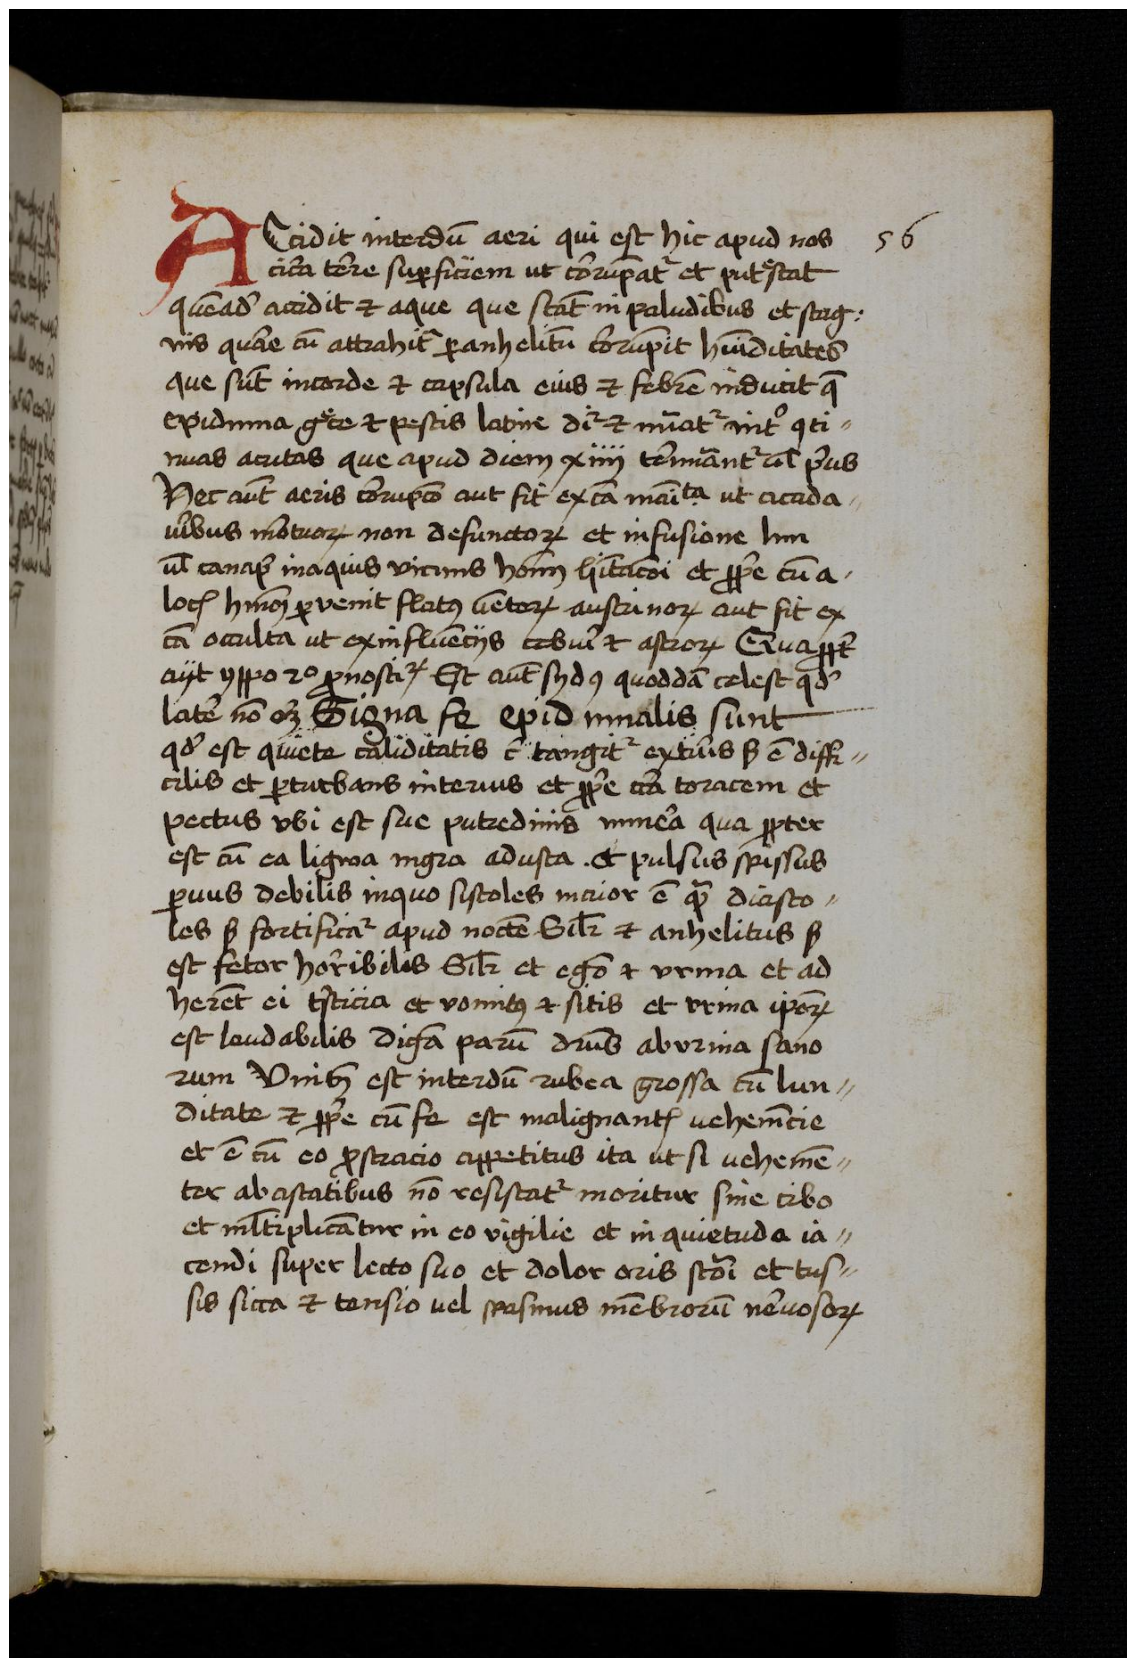 ACcidit interdū aeri qui est hic apud nos 56
circa terre superficiem ut corrūpat᷑ et putrescat
quēadꝰ accidit ⁊ aque que stāt in paludibus et stag:
nis quare cū attrahit᷑ ꝑ anhelitū corrūpit hūiditates
que sūt in corde ⁊ capsula eius ⁊ febrē inducit q̄
epidimia grece ⁊ pestis latine dī᷑ ⁊ nūcat᷑ int᷑ ꝯti〃
nuas acutas que apud diem xiiii termināt᷑ ul̄ prius
Hec aūt aeris corrupcō aut fit ex cā māīta ut a cada〃
ueribus mortuoꝝ non defunctoꝝ et infusione lini
ul̄ canap̄ in aquis vicinis hoīm hītacōi et ꝓpe cū a
locꝭ hmōi ꝑvenit flatꝰ uētoꝝ austrinoꝝ aut fit ex
cā occulta ut ex influēciis et astroꝝ Qua ꝓpt̄
ait yppo 2º ꝓnosticoꝝ Est aūt sydꝰ quoddā celest qd̕
latē nō Signa fe epidimialis sunt
qd̕ est quiete caliditatis c̄ tangit᷑ exterius sꝫ ē diffi〃
cilis et ꝑturbans interius et ꝓpe circa toracem et
pectus vbi est sue putredinis minera qua ꝓpter
est cū ea lingwa nigra adusta . et pulsus spissus
ꝑuus debilis in quo sistoles maior ē qͣ diasto〃
les sꝫ fortificat᷑ apud noctē Silr̄ ⁊ anhelitus sꝫ
est fetor horribilis Silr̄ et egō ⁊ vrina et ad
herēt ei tristicia et vomitꝰ ⁊ sitis et vrina ipōꝝ
est laudabilis digā parū diuersa ab vrina sano
rum est interdū rubea grossa cū lun〃
ditate ⁊ ꝓpe cū fe est malignantꝭ uehemēcie
et ē cū eo ꝓstracio appetitus ita ut si uehemē〃
ter ab astātibus nō resistat᷑ moritur sine cibo
et ml̄tiplicātur in eo vigilie et in quietudo ia〃
cendi super lecto suo et dolor oris stōi et tus〃
sis sicca ⁊ tensio uel spasmus mēbrorū neruosoꝝ